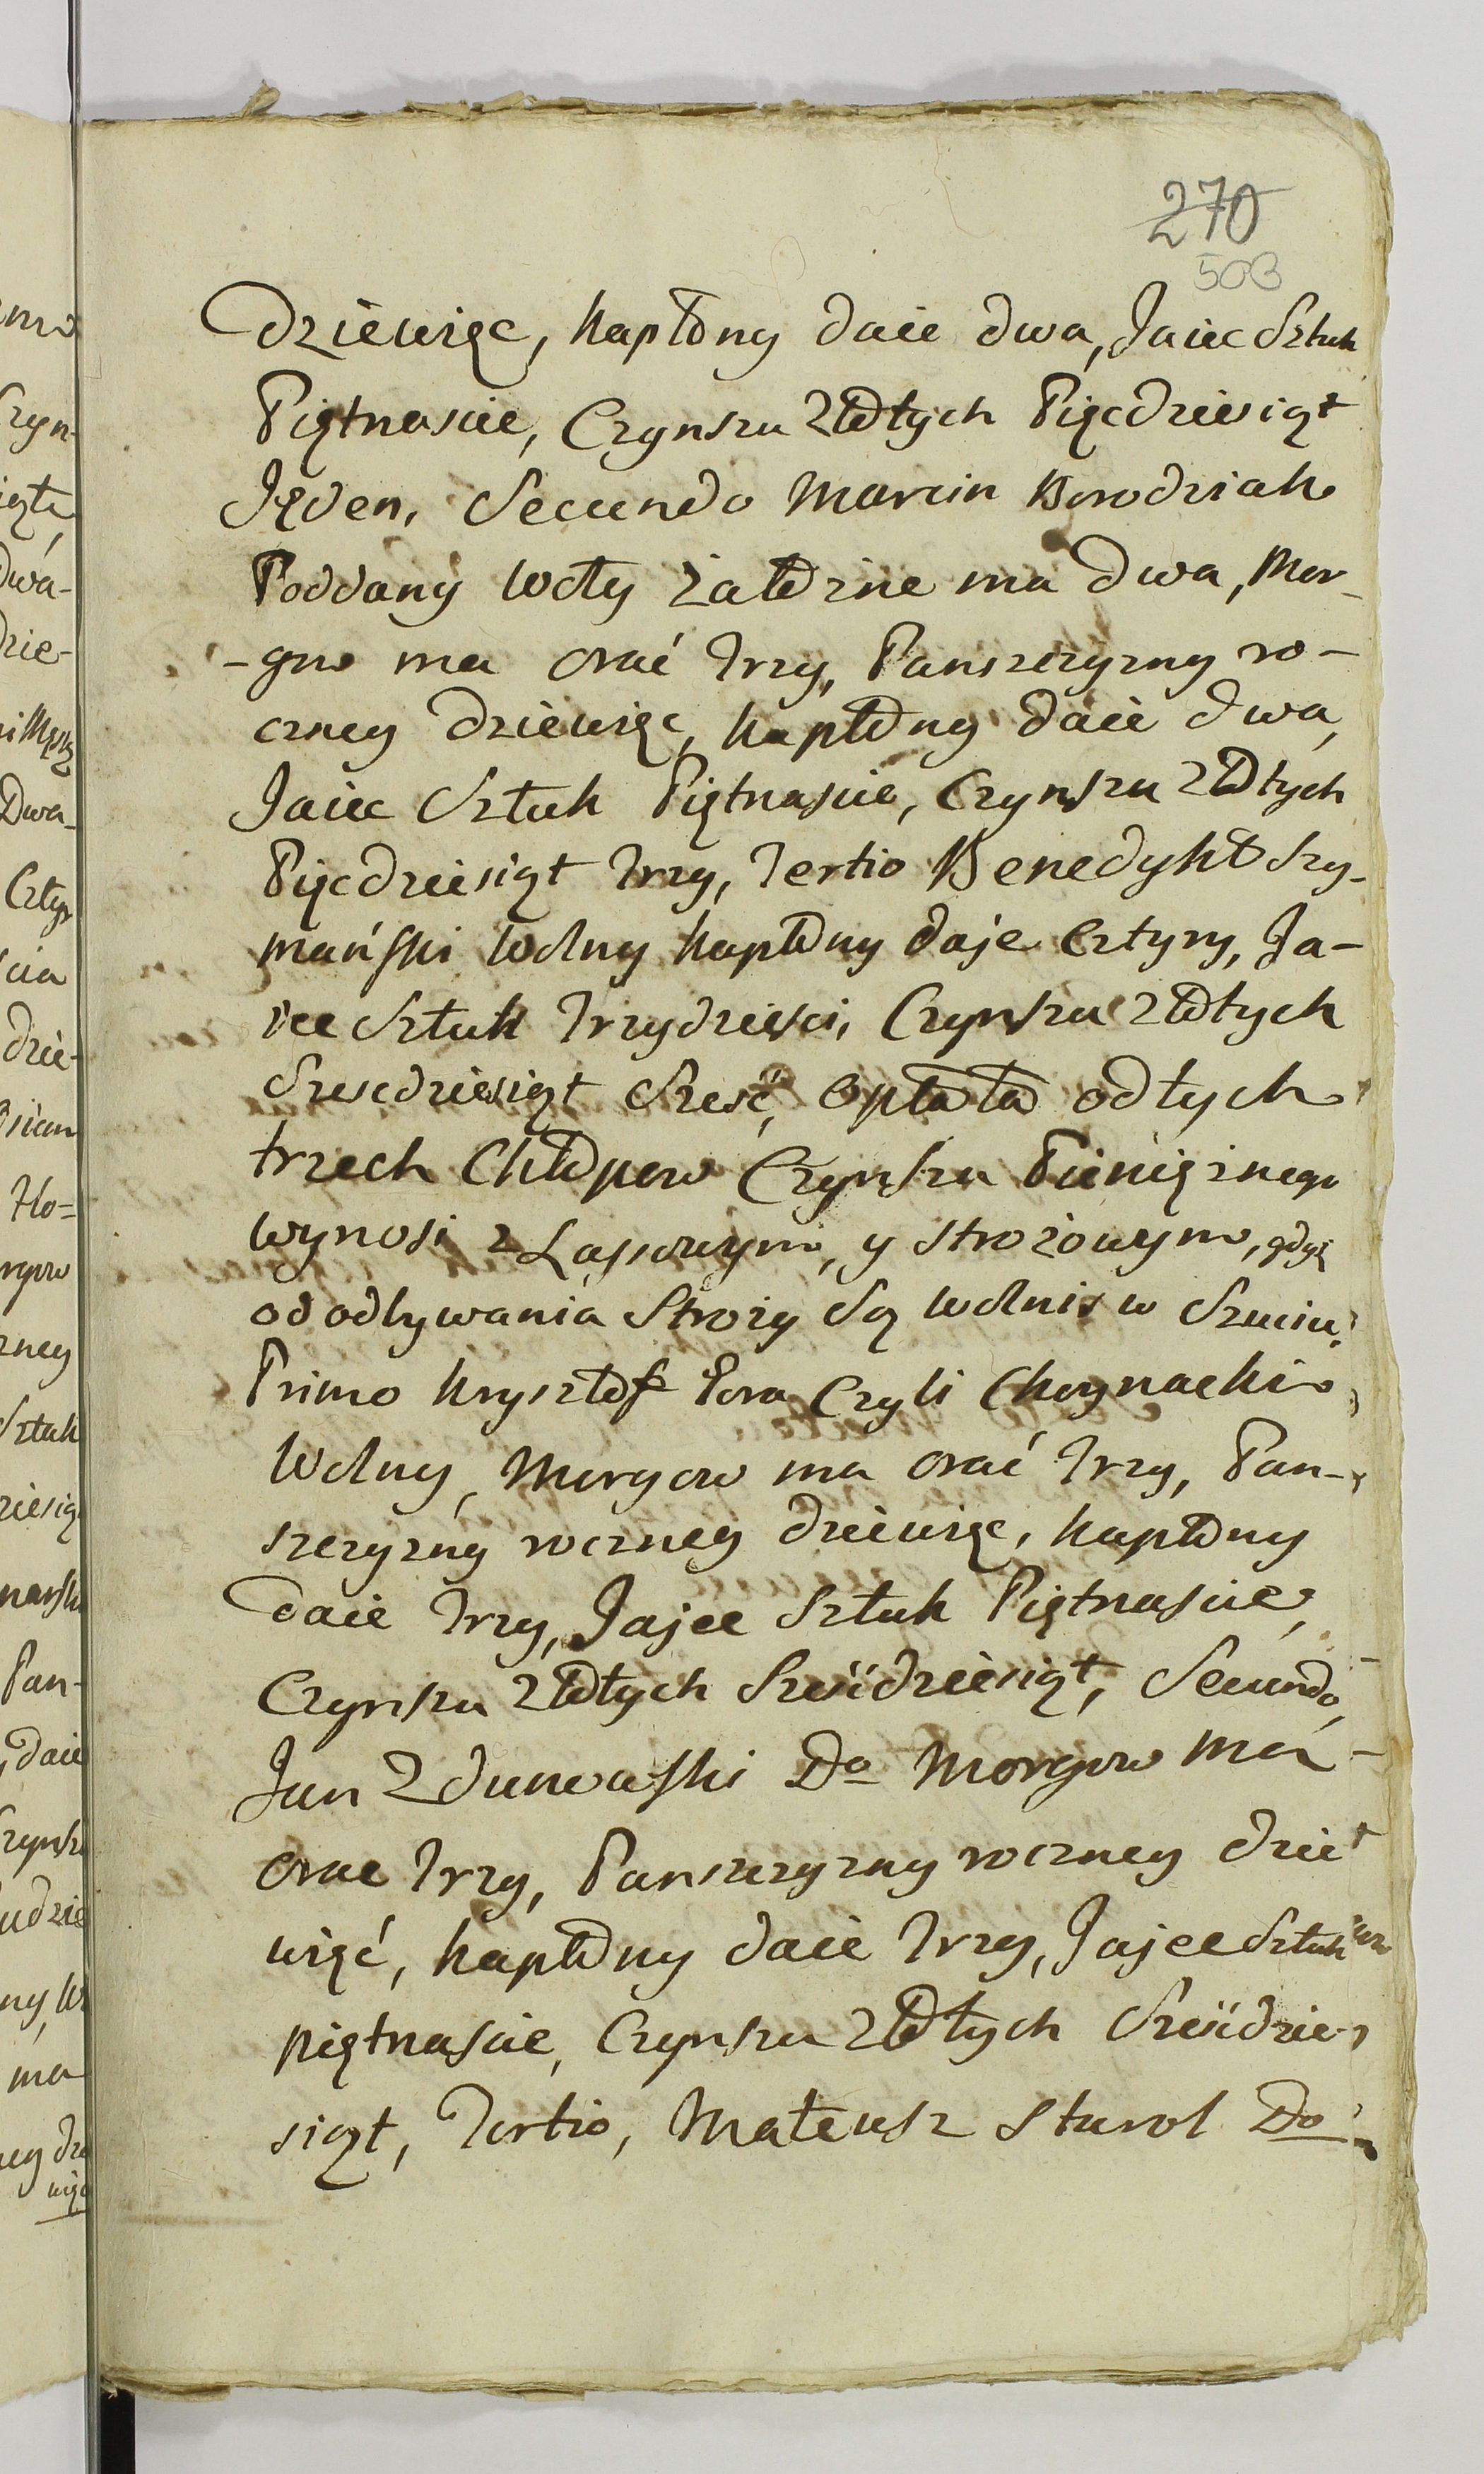 270
503
Dziewięc, kapłony daie dwa, Jaiec Sztuk
Piętnascie, Czynszu Złotych Pięcdziesiąt
Jęden, Secundo Marcin Borodziak
Poddany Woły załozne ma dwa, Mor-
-gow ma orać Trzy, Panszczyzny ro-
czney dziewięc, kapłony daie dwa,
Jaiec Sztuk Piętnascie, Czynszu Złotych
Pięcdziesiąt Trzy, Tertio Benedykt Szy-
mański Wolny kapłony daje Cztyry, Ja-
iec Sztuk Trzydziesci, Czynszu Złotych
Szescdziesiąt Sześć, Opłata od tych
trzech Chłopow Czynszu Pieniężnego
wynosi z Lassowym, y Strożowym, gdyż
od odbywania Stroży Są wolni w Szuciu
Primo Krysztof Pora Czyli Choynacki
Wolny, Morgow ma orać Trzy, Pan-
szczyzny roczney dziewięc, kapłony
daie Trzy, Jajec Sztuk Piętnascie,
Czynszu Złotych Sześćdziesiąt, Secundo,
Jan Zdunowski Do Morgow ma
orac Trzy, Panszczyzny roczney dzie
więć, kapłony daie Trzy, Jajec Sztuk
piętnascie, Czynszu Złotych Sześćdzie-
siąt, Tertio, Mateusz Starol Do